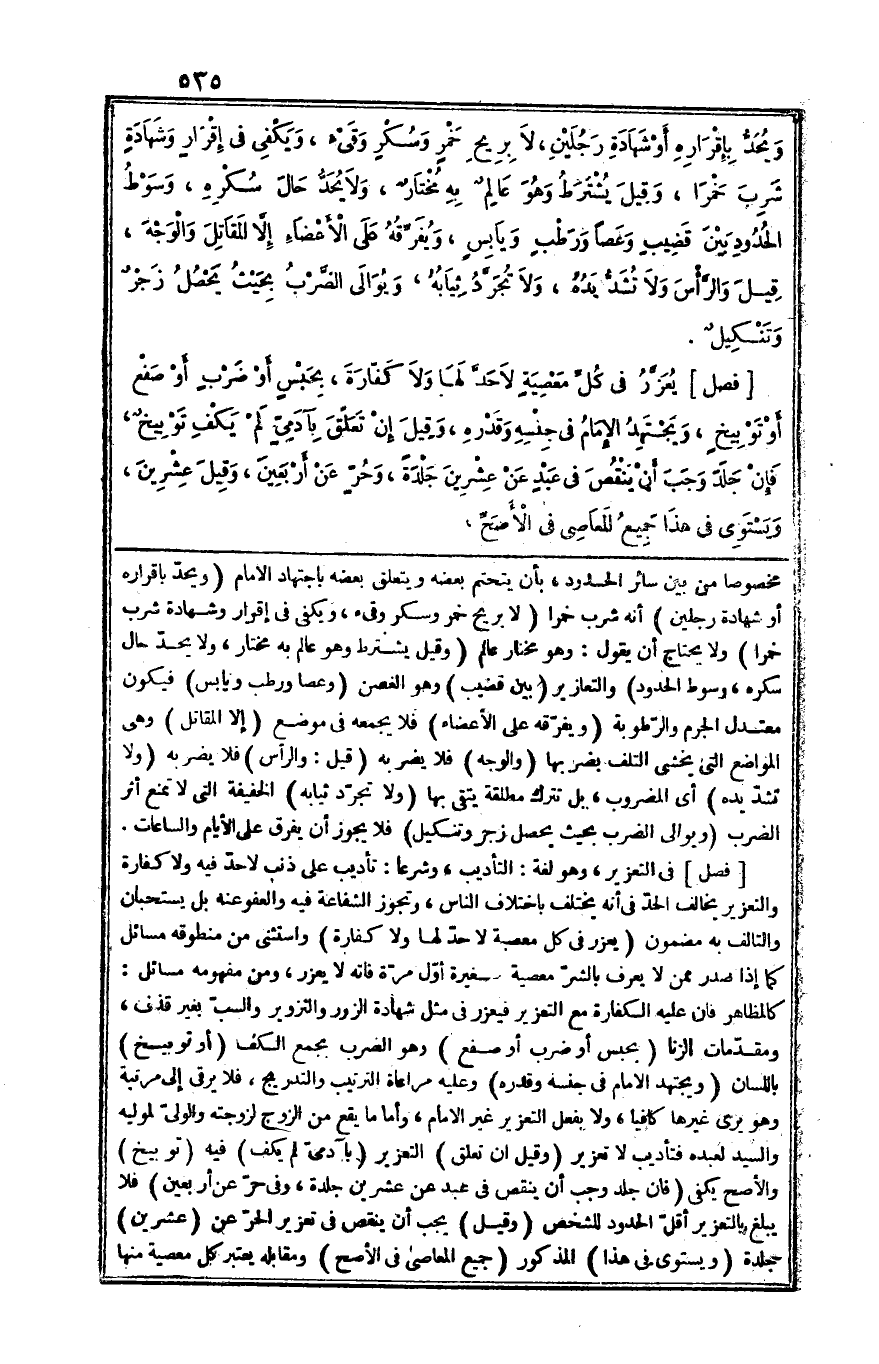 ٥٣٥
وَيُحَدُّ بِإِقْرَارِهِ أَوْ شَهَادَةِ رَجُلَيْنِ، لاَ بِرِيحِ خَمْرٍ وَسُكْرٍ وَقَىْءٍ ، وَيَكْفِى فِى إِقْرَارٍ وَشَهَادَةٍ
شَرِبَ خَمْرًا ، وَقِيلَ يُشْتَرَطُ وَهُوَ عَالِمٌ بِهِ مُخْتَارٌ ، وَلاَ يُحَدُّ حَالَ سُكْرِهِ ، وَسَوْطُ
الْحُدُودِ بَيْنَ قَضِيبٍ وَعَصاً وَرَطْبٍ وَيَابِسٍ ، وَيُفَرِّقُهُ عَلَى الْأَعْضَاءِ إِلَّا الْمَقَاتِلَ وَالْوَجْهَ ،
قِيلَ وَالرَّأْسَ وَلاَ تُشَدُّ يَدُهُ ، وَلاَ تُجَرَّدُ ثِيَابُهُ ، وَيُوَالَى الضَّرْبُ بِحَيْثُ يَحْصُلُ زَجْرٌ
وَتَنْكِيلٌ .
[ فصل ] يُعَزَّرُ فى كُلِّ مَعْصِيَةٍ لاَحَدَّ لَهَا وَلاَ كَفَّارَةَ ، بِحَبْسٍ أَوْ ضَرْبٍ أَوْ صَفْعٍ
أَوْ تَوْبِيخٍ ، وَيَجْتَهِدُ الإِمَامُ فى جِنْسِهِ وَقَدْرِهِ ، وَقِيلَ إِنْ تَعَلَّقَ بِآدَمِىٍّ لَمْ يَكْفِ تَوْبِيخٌ ،
فَإِنْ جَلَدَ وَجَبَ أَنْ يَنْقُصَ فى عَبْدٍ عَنْ عِشْرِينَ جَلْدَةً ، وَحُرٍّ عَنْ أَرْبَعِينَ ، وَقِيلَ عِشْرِينَ ،
وَيَسْتَوِى فى هذَا جَمِيعُ الْمَعَاصِى فى الْأَصَحِّ ،
مخصوصا من بين سائر الحدود ، بأن يتحتم بعضه ويتعلق بعضه باجتهاد الامام ( ويحدّ باقراره
أو شهادة رجلين ) أنه شرب خمرا ( لا بريح خمر وسكر وقىء ، ويكفى فى إقرار وشهادة شرب
خمرا ) ولا يحتاج أن يقول : وهو مختار عالم ( وقيل يشترط وهو عالم به مختار ، ولا يحدّ حال
سكره ، وسوط الحدود) والتعازير ( بين قضيب ) وهو الغصن ( وعصا ورطب ويابس ) فيكون
معتدل الجرم والرّطوبة ( ويفرّقه على الأعضاء ) فلا يجمعه فى موضع ( إلا المقاتل ) وهى
المواضع التى يخشى التلف بضربها ( والوجه ) فلا يضربه ( قيل : والرأس ) فلا يضربه ( ولا
تشدّ يده ) أى المضروب ، بل تترك مطلقة يتقى بها ( ولا تجرّد ثيابه ) الخفيفة التى لا تمنع أثر
الضرب ( ويوالى الضرب بحيث يحصل زجر وتنكيل ) فلا يجوز أن يفرق على الأيام والساعات .
[ فصل ] فى التعزير ، وهو لغة : التأديب ، وشرعا : تأديب على ذنب لاحدّ فيه ولا كفارة
والتعزير يخالف الحدّ فى أنه يختلف باختلاف الناس ، وتجوز الشفاعة فيه والعفو عنه بل يستحبان
والتالف به مضمون ( يعزر فى كل معصية لا حدّ لها ولا كفارة ) واستثنى من منطوقه مسائل
كما إذا صدر ممن لا يعرف بالشرّ معصية صغيرة أوّل مرّة فانه لا يعزر ، ومن مفهومه مسائل :
كالمظاهر فان عليه الكفارة مع التعزير فيعزر فى مثل شهادة الزور والتزوير والسبّ بغير قذف ،
ومقدّمات الزنا ( بحبس أو ضرب أو صفع ) وهو الضرب بجمع الكف ( أو توبيخ )
باللسان ( ويجتهد الامام فى جنسه وقدره ) وعليه مراعاة الترتيب والتدريج ، فلا يرقى إلى مرتبة
وهو يرى غيرها كافيا ، ولا يفعل التعزير غير الامام ، وأما ما يقع من الزوج لزوجته والولىّ لموليه
والسيد لعبده فتأديب لا تعزير ( وقيل ان تعلق ) التعزير ( بآدمىّ لم يكف ) فيه ( توبيخ )
والأصح يكفى ( فان جلد وجب أن ينقص فى عبد عن عشرين جلدة ، وفى حرّ عن أربعين ) فلا
يبلغ بالتعزير أقلّ الحدود للشخص ( وقيل ) يجب أن ينقص فى تعزير الحرّ عن ( عشرين )
جلدة ( ويستوى فى هذا ) المذكور ( جميع المعاصى فى الأصح ) ومقابله يعتبر كل معصية منها